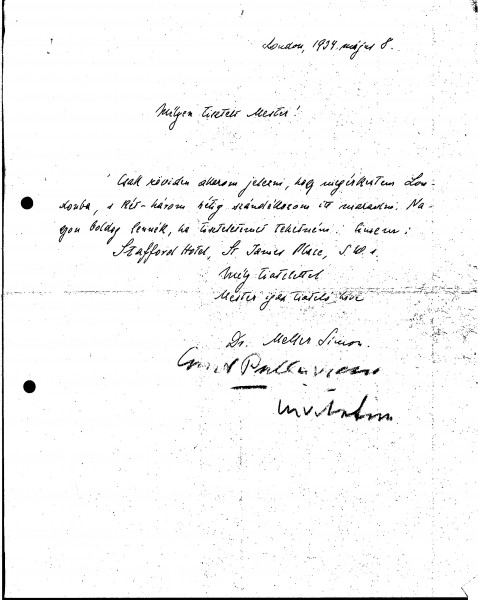 London, 1934 május 8.
Mélyen tisztelt Mester!
Csak röviden akarom jelezni, hogy megérkeztem Lon-
donba, s két-három hétig szándékozom itt maradni. Na-
gyon boldog lennék, ha tiszteletemet tehetném. Címem:
Stafford Hotel, St James Place, S.W.1.
Mély tisztelettel
Mester igaz tisztelő híve
Dr. Meller Simon.
invitation